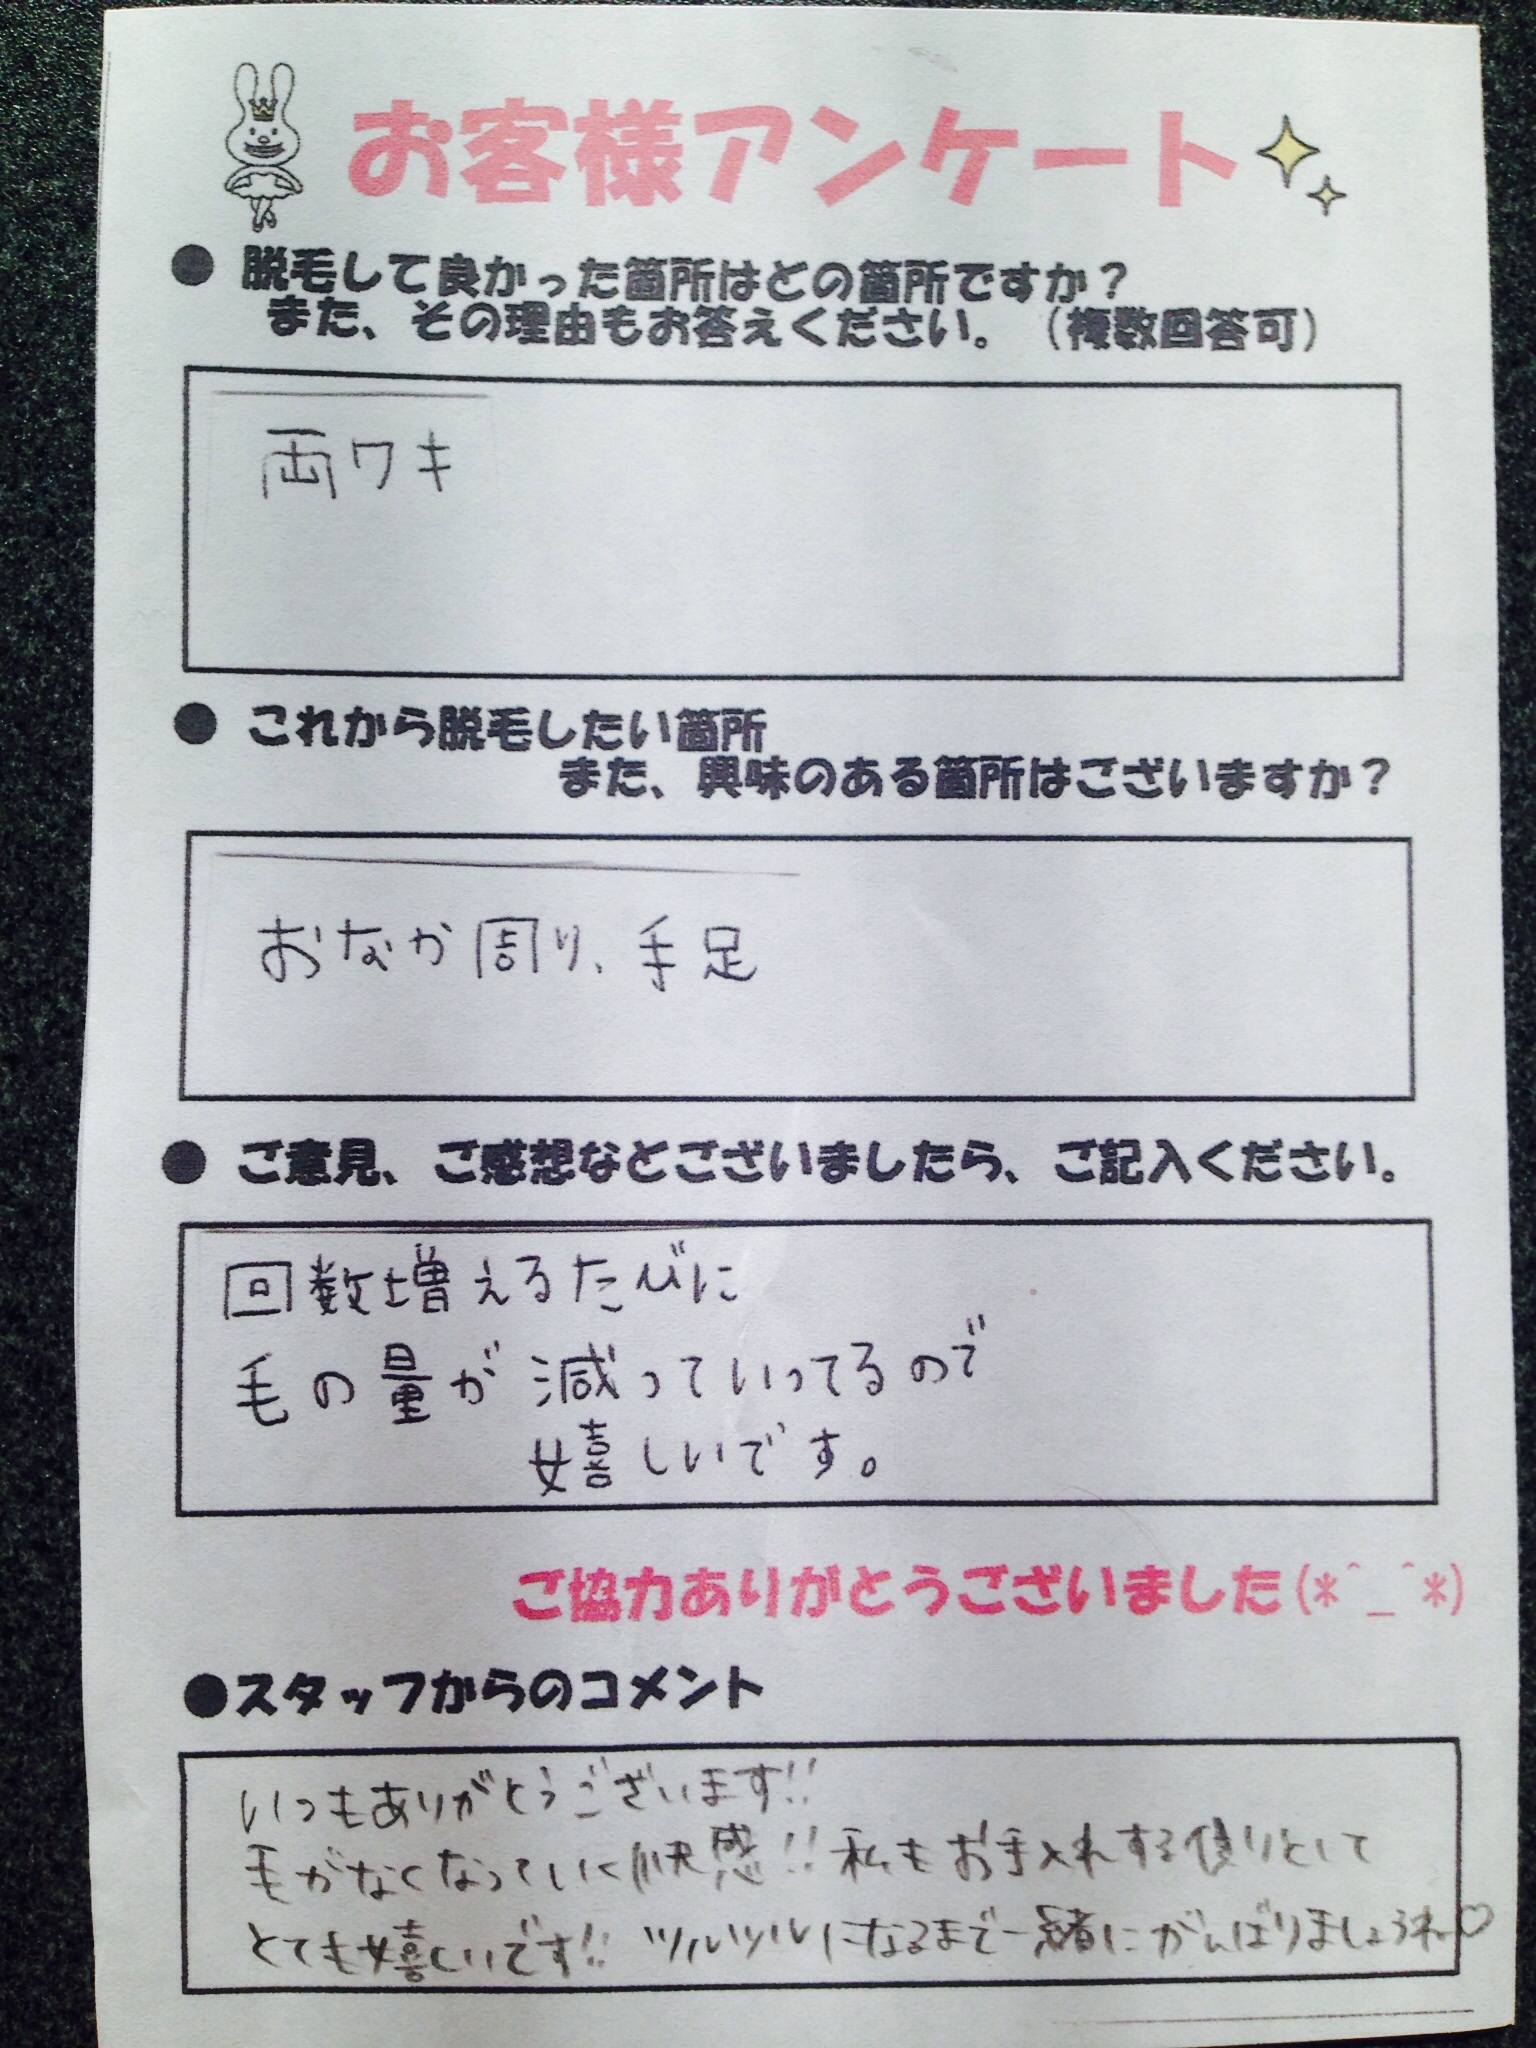 お客様アンケート
● 脱毛して良かった箇所はどの箇所ですか？
また、その理由もお答えください。（複数回答可）
両ワキ
● これから脱毛したい箇所
また、興味のある箇所はございますか？
おなか周り、手足
● ご意見、ご感想などございましたら、ご記入ください。
回数増えるたびに
毛の量が減っていってるので
嬉しいです。
ご協力ありがとうございました(*^_^*)
●スタッフからのコメント
いつもありがとうございます!!
毛がなくなっていく快感!! 私もお手入れする側りとして
とても嬉しいです!! ツルツルになるまで一緒にがんばりましょうね♡